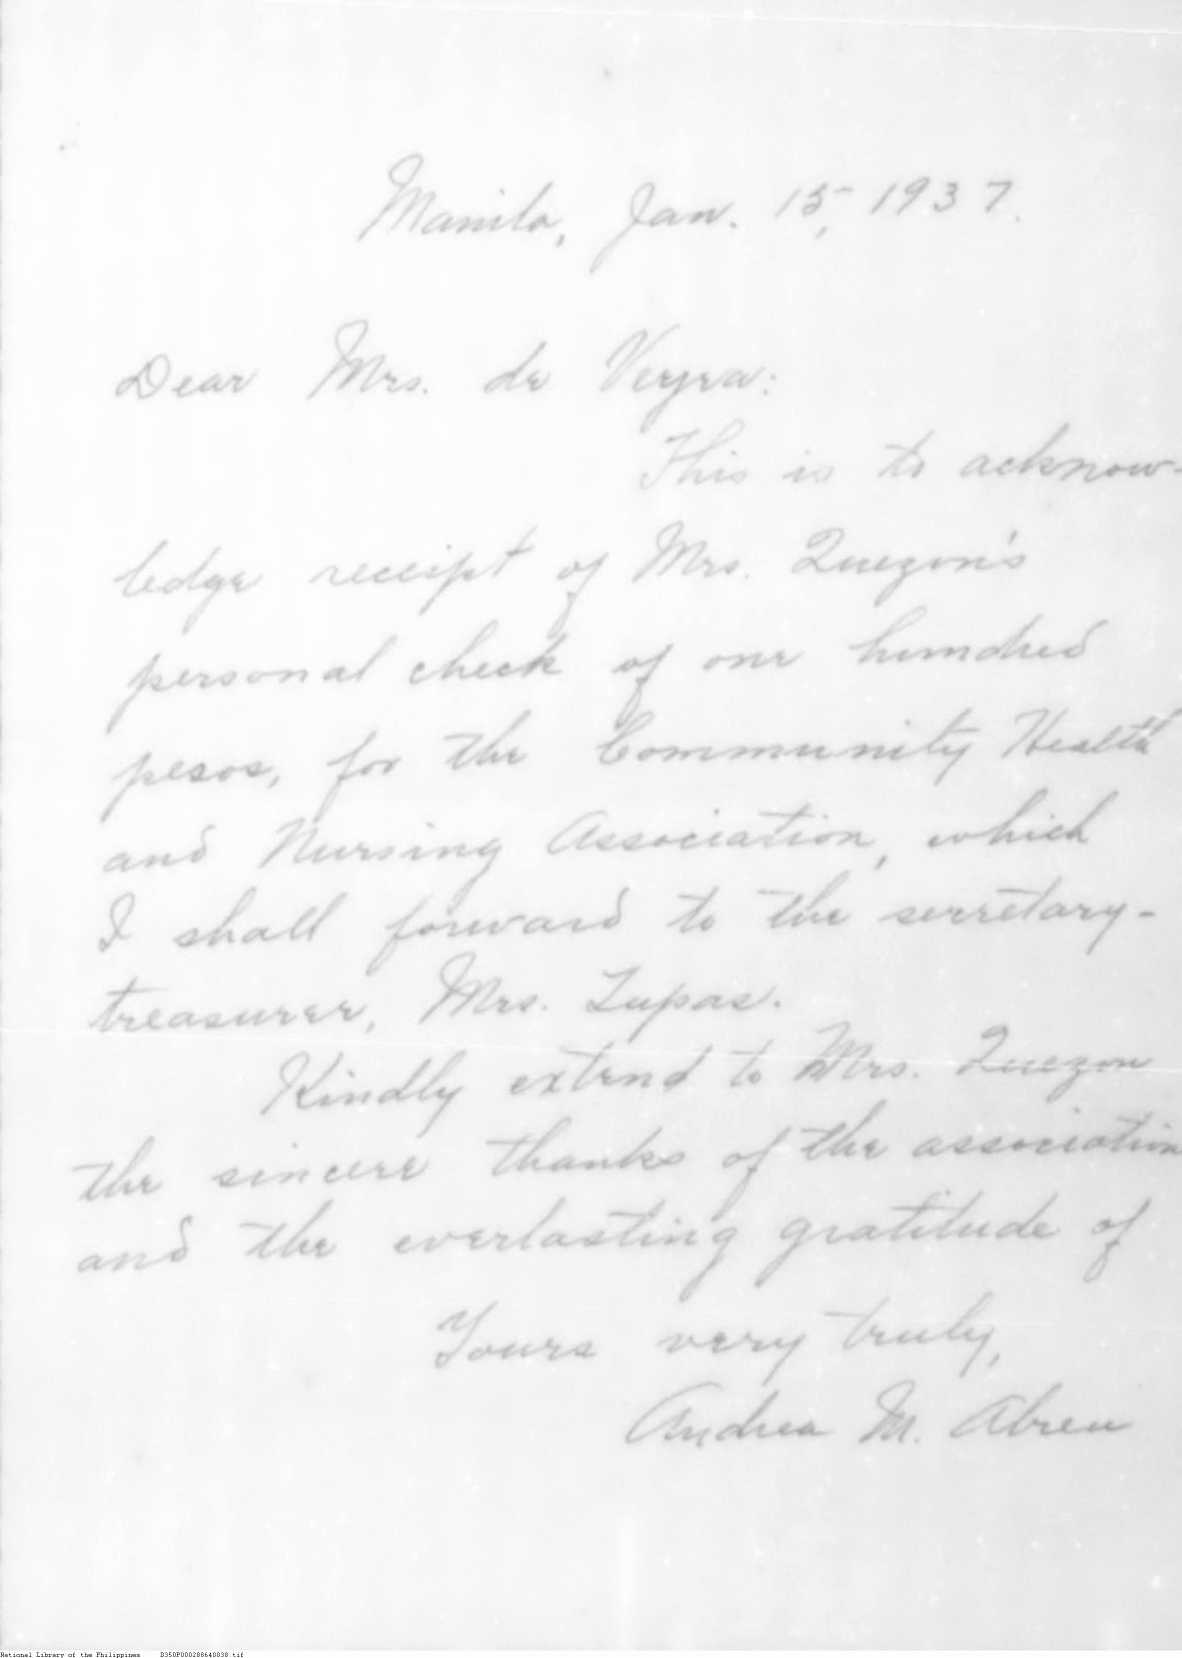 Manila, Jan. 15, 1937.
Dear Mrs. de Veyra:
This is to acknow-
ledge receipt of Mrs. Quezon's
personal check of one hundred
pesos, for the Community Health
and Nursing Association, which
I shall forward to the secretary-
treasurer, Mrs. Tupas.
Kindly extend to Mrs. Quezon
the sincere thanks of the association
and the everlasting gratitude of
Yours very truly,
Andrea M. Abreu
National Library of the Philippines